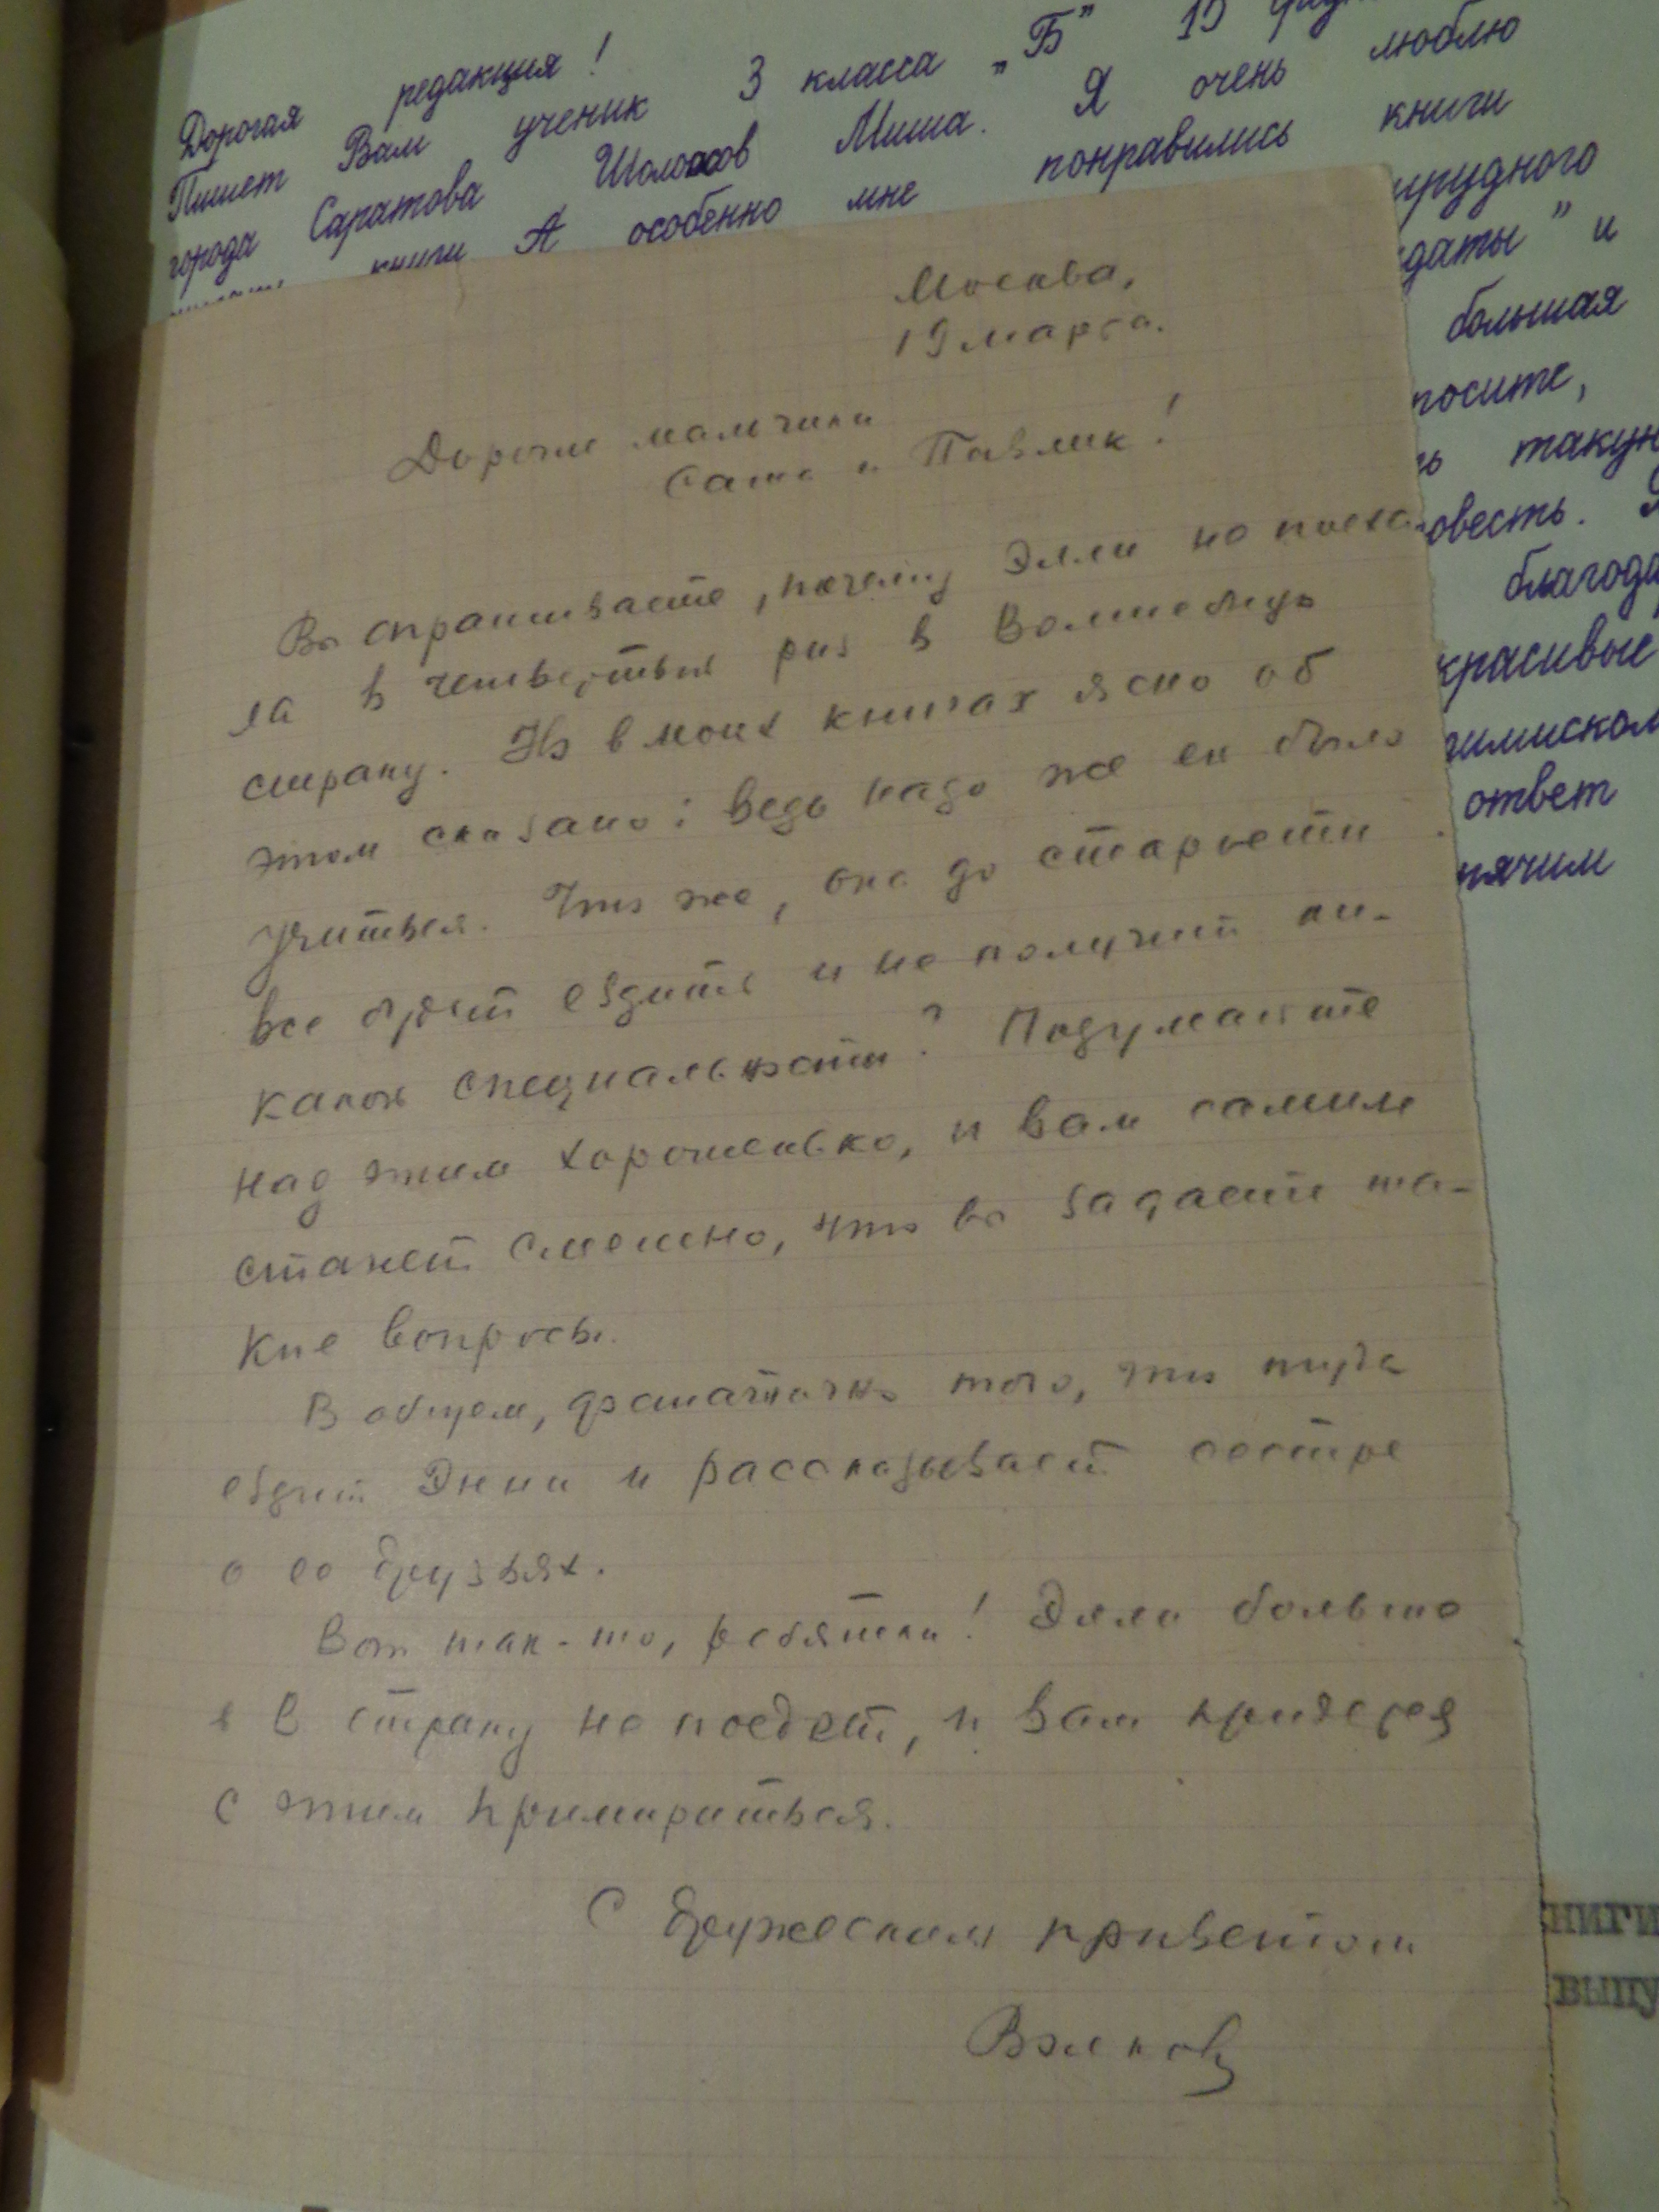 Дорогая редакция!
Пишет Вам ученик 3 класса „Б" 15
города Саратова Миша. Я очень люблю
книги А особенно мне понравились книги
даты" и
большая
ответ
красивые
Москва,
19 марта.
Дорогие мальчики
Саша и Павлик!
Вы спрашиваете, почему Элли не поеха
ла в четвертый раз в Волшебную
страну. Но в моих книгах ясно об
этом сказано: ведь надо же ей было
учиться. Что же, она до старости
все будет ездить и не получит ни-
какой специальности? Подумайте
над этим хорошенько, и вам самим
станет смешно, что вы задаете та-
кие вопросы.
В общем, достаточно того, что туда
ездит Энни и рассказывает сестре
о ее друзьях.
Вот так-то, ребятки! Элли больше
в В страну не поедет, и вам придется
с этим примириться.
С дружеским приветом
Волков
ниги
выпу